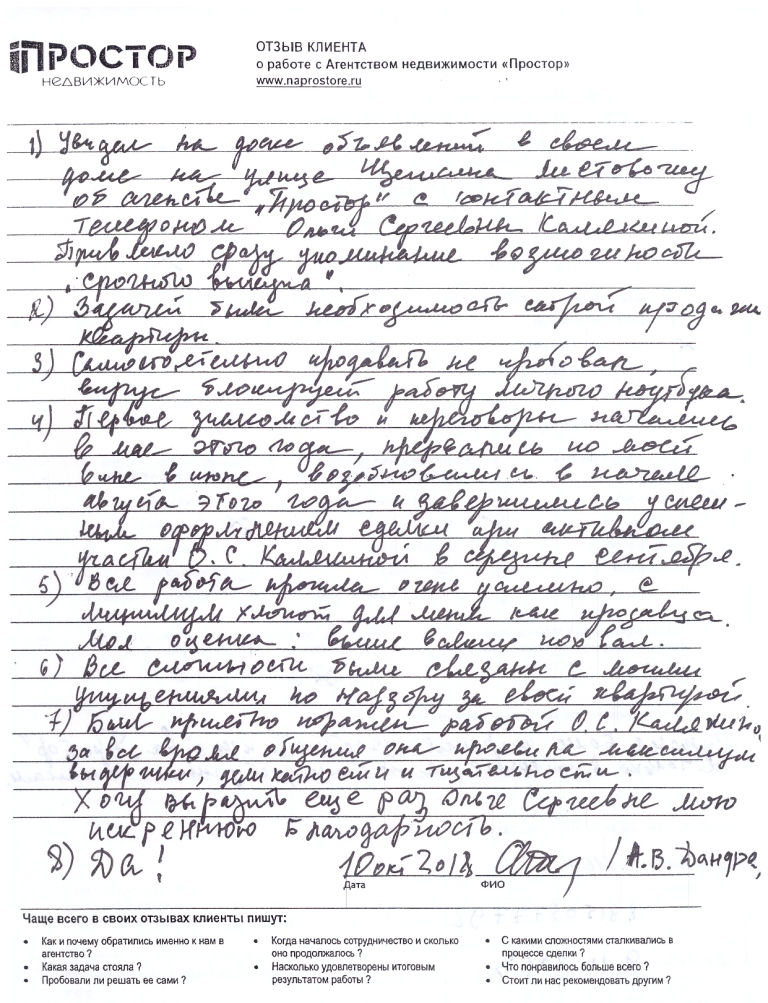 ПРОСТОР
НЕДВИЖИМОСТЬ
ОТЗЫВ КЛИЕНТА
о работе с Агентством недвижимости «Простор»
www.naprostore.ru
1) Увидел на доске объявлений в своем
доме на улице Щепкина листовочку
об агенстве „Простор" с контактным
телефоном Ольги Сергеевны Калякиной.
Привлекло сразу упоминание возможности
„срочного выкупа".
2) Задачей была необходимость скорой продажи
квартиры.
3) Самостоятельно продавать не пробовал,
вирус блокирует работу личного ноутбука.
4) Первое знакомство и переговоры начались
в мае этого года, прервались по моей
вине в июне, возобновились в начале
августа этого года и завершились успеш-
ным оформлением сделки при активном
участии О.С. Калякиной в середине сентября.
5) Вся работа прошла очень успешно, с
минимум хлопот для меня как продавца.
Моя оценка: выше всяких похвал.
6) Все сложности были связаны с моими
упущениями по надзору за своей квартирой.
7) Был приятно поражен работой О.С. Калякиной,
за все время общения она проявила максимум
выдержки, деликатности и тщательности.
Хочу выразить еще раз Ольге Сергеевне мою
искреннюю благодарность.
8) Да!
10 окт 2018 / А.В. Дандре
Дата
ФИО
Чаще всего в своих отзывах клиенты пишут:
• Как и почему обратились именно к нам в
агентство ?
• Какая задача стояла ?
• Пробовали ли решать ее сами ?
• Когда началось сотрудничество и сколько
оно продолжалось ?
• Насколько удовлетворены итоговым
результатом работы ?
• С какими сложностями сталкивались в
процессе сделки ?
• Что понравилось больше всего ?
• Стоит ли нас рекомендовать другим ?